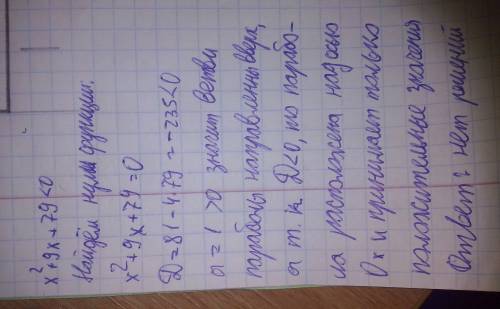 x² + 9x + 79 < 0
Найдём нули функции:
x² + 9x + 79 = 0
D = 81 - 4·79 = -235 < 0
a = 1 > 0 значит ветви
параболы направлены вверх,
а т. к. D < 0, то парабо-
ла расположена над осью
Ox и принимает только
положительные значения
Ответ: нет решений